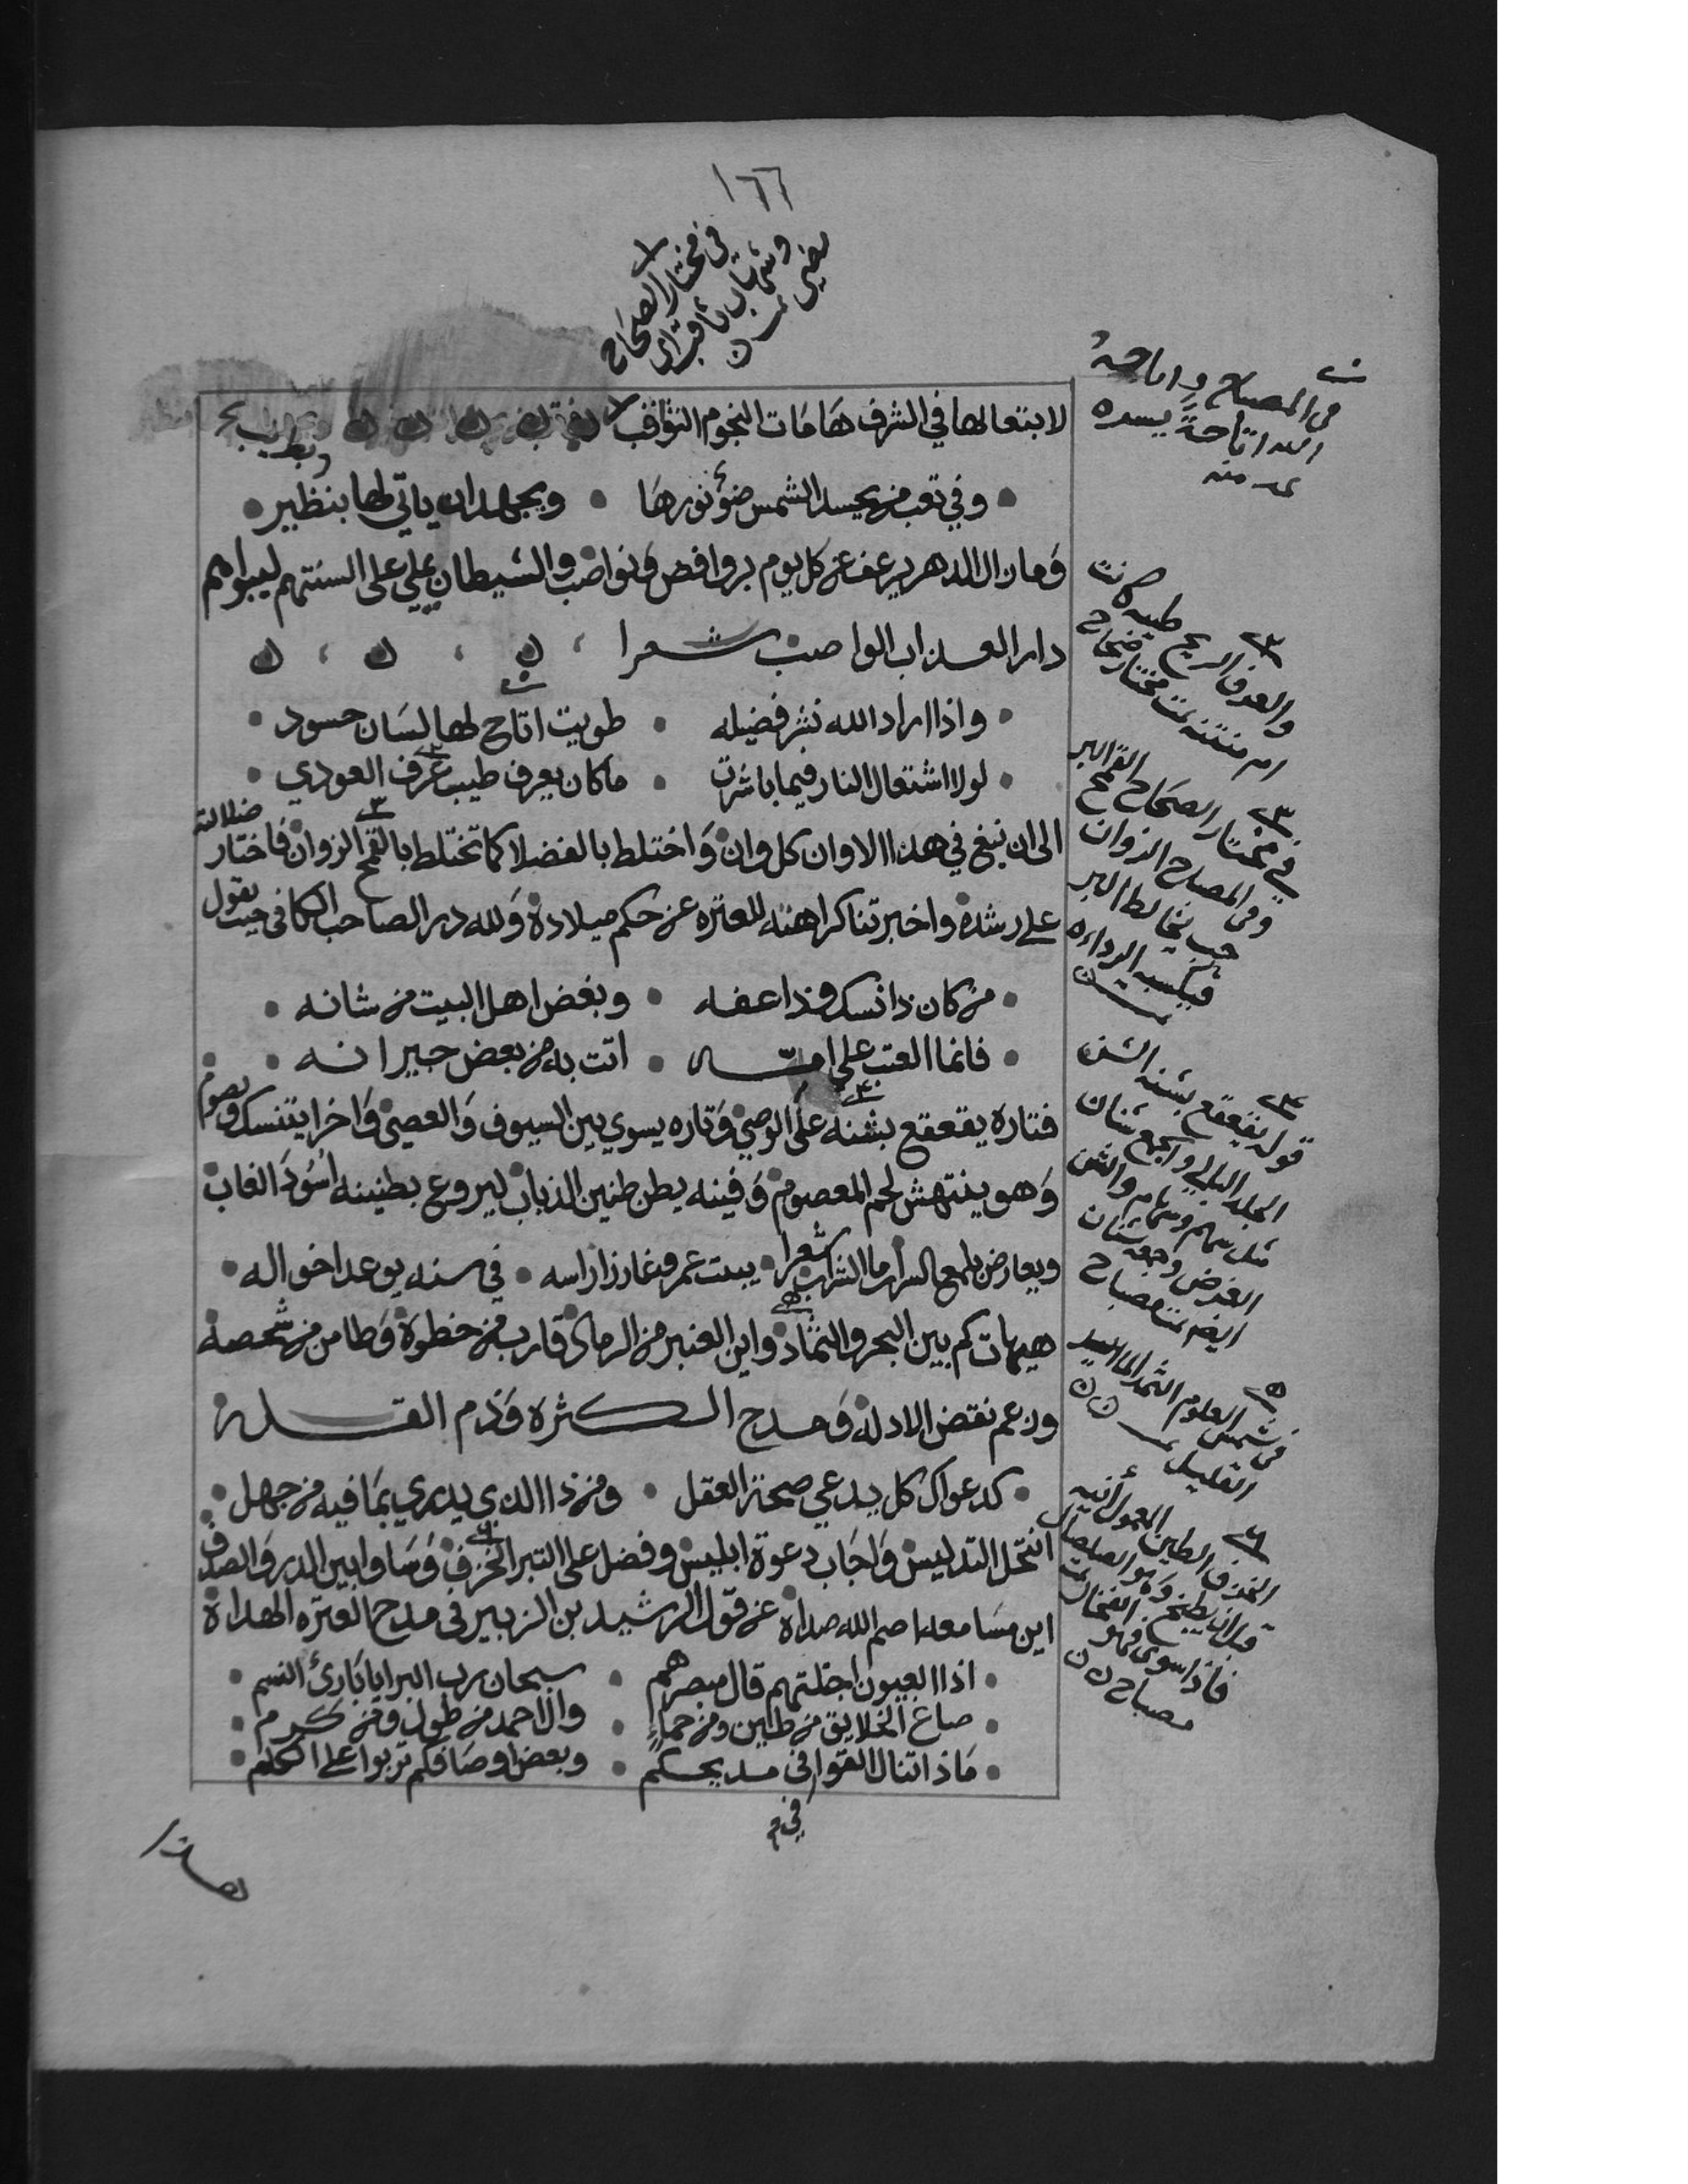 ١٦٦
في مختار الصحاح
وشهاب ثاقب اي
مضيء تمت
لابتعالها في الشرف هامات النجوم الثواقب
وفي تعب من يحسد الشمس ضوء نورها • ويجهد ان ياتي لها بنظير
وما زال الدهر يرعف عن كل يوم بروافض ونواصب والشيطان يملي على السنتهم ليبواهم
دار العذاب الواصب شعرا
واذا اراد الله نشر فضيله • طويت اتاح لها لسان حسود
لولا اشتعال النار فيما باشرت • ما كان يعرف طيب عرف العودي
الى ان نبغ في هذا الاوان كل وان واختلط بالفضلا كما تختلط بالقمح الزوان فاختار ضلالته
على رشده واخبرتنا كراهته للعتره عن حكم ميلاده ولله در الصاحب الكافي حيث يقول
من كان ذا نسك وذا عفه • وبغض اهل البيت من شانه
فانما العتب على امه • اتت به من بعض جيرانه
فتارة يقعقع بشنه على الوصي وتاره يسوي بين السيوف والعصي واخرا يتنسك ويصوم
وهو ينتهش لحم المعصوم وفينه يطن طنين الذباب ليروع بطنينه اسود الغاب
ويعارض بلمع السراب ما الشراب شعرا • يبيت عمر وغارزا راسه • في سنه يوعد اخواله
هيهات كم بين البحر والثماد واين العنبر من الرماد قارب من خطوه وطامن من شخصه
وزعم نقض الادله ومدح الكثره وذم القله
كدعواك كل يدعي صحة العقل • ومن ذا الذي يدري بما فيه من جهل
انتحل التدليس واجاب دعوة ابليس وفضل على التبر الخزف وساوا بين الدر والصدف
اين مسامعه اصم الله صداه عن قول الرشيد بن الزبير في مدح العتره الهداه
اذا العيون اجتلتهم قال مبصرهم • سبحان رب البرايا بارئ النسم
صاغ الخلايق من طين ومن حماء • والاحمد من طول ومن كرم
ماذا تنال القوافي في مديحكم • وبعض اوصافكم تربوا على الكلم
في المصباح واتاحه
الله اتاحة يسره
تمت منه
والعرف الريح طيبه كانت
ام منتنه تمت مختار صحاح
في مختار الصحاح القمح البر
وفي المصباح الزوان
حب يخالط البر
فيكسبه الرداءه
قوله يقعقع بشنه الشن
الجلد البالي والجمع شنان
مثل سهم وسهام والشن
الغرض وجمعه شنان
ايضا تمت مصباح
في شمس العلوم الثمد الماء
القليل
الخزف الطين المعمول آنيه
قبل ان يطبخ وهو الصلصال
فاذا شوي فهو الفخار تمت
مصباح